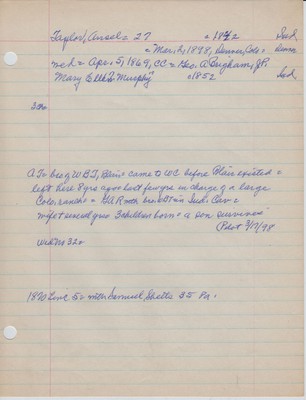 Taylor, Ansel = 27 = 1842 Ind,
= Mar, 2, 1898, Denver, Colo = Denver
med = Apr. 5, 1869, CC = Geo. A Bingham, J.P.
"Mary Ellen Murphy" = 1852 Ind,
320
A To be g W B T, Blain = came to WC before Plain existed =
left here 8 yrs ago = last few yrs in charge of a large
Colo, ranch = GAR mth Ind = Cav =
wife + several grown 3 children born = a son survives"
(Pilot 3/9/98
320
1870 Line 5 = with Samuel Sheets 35 Pa.